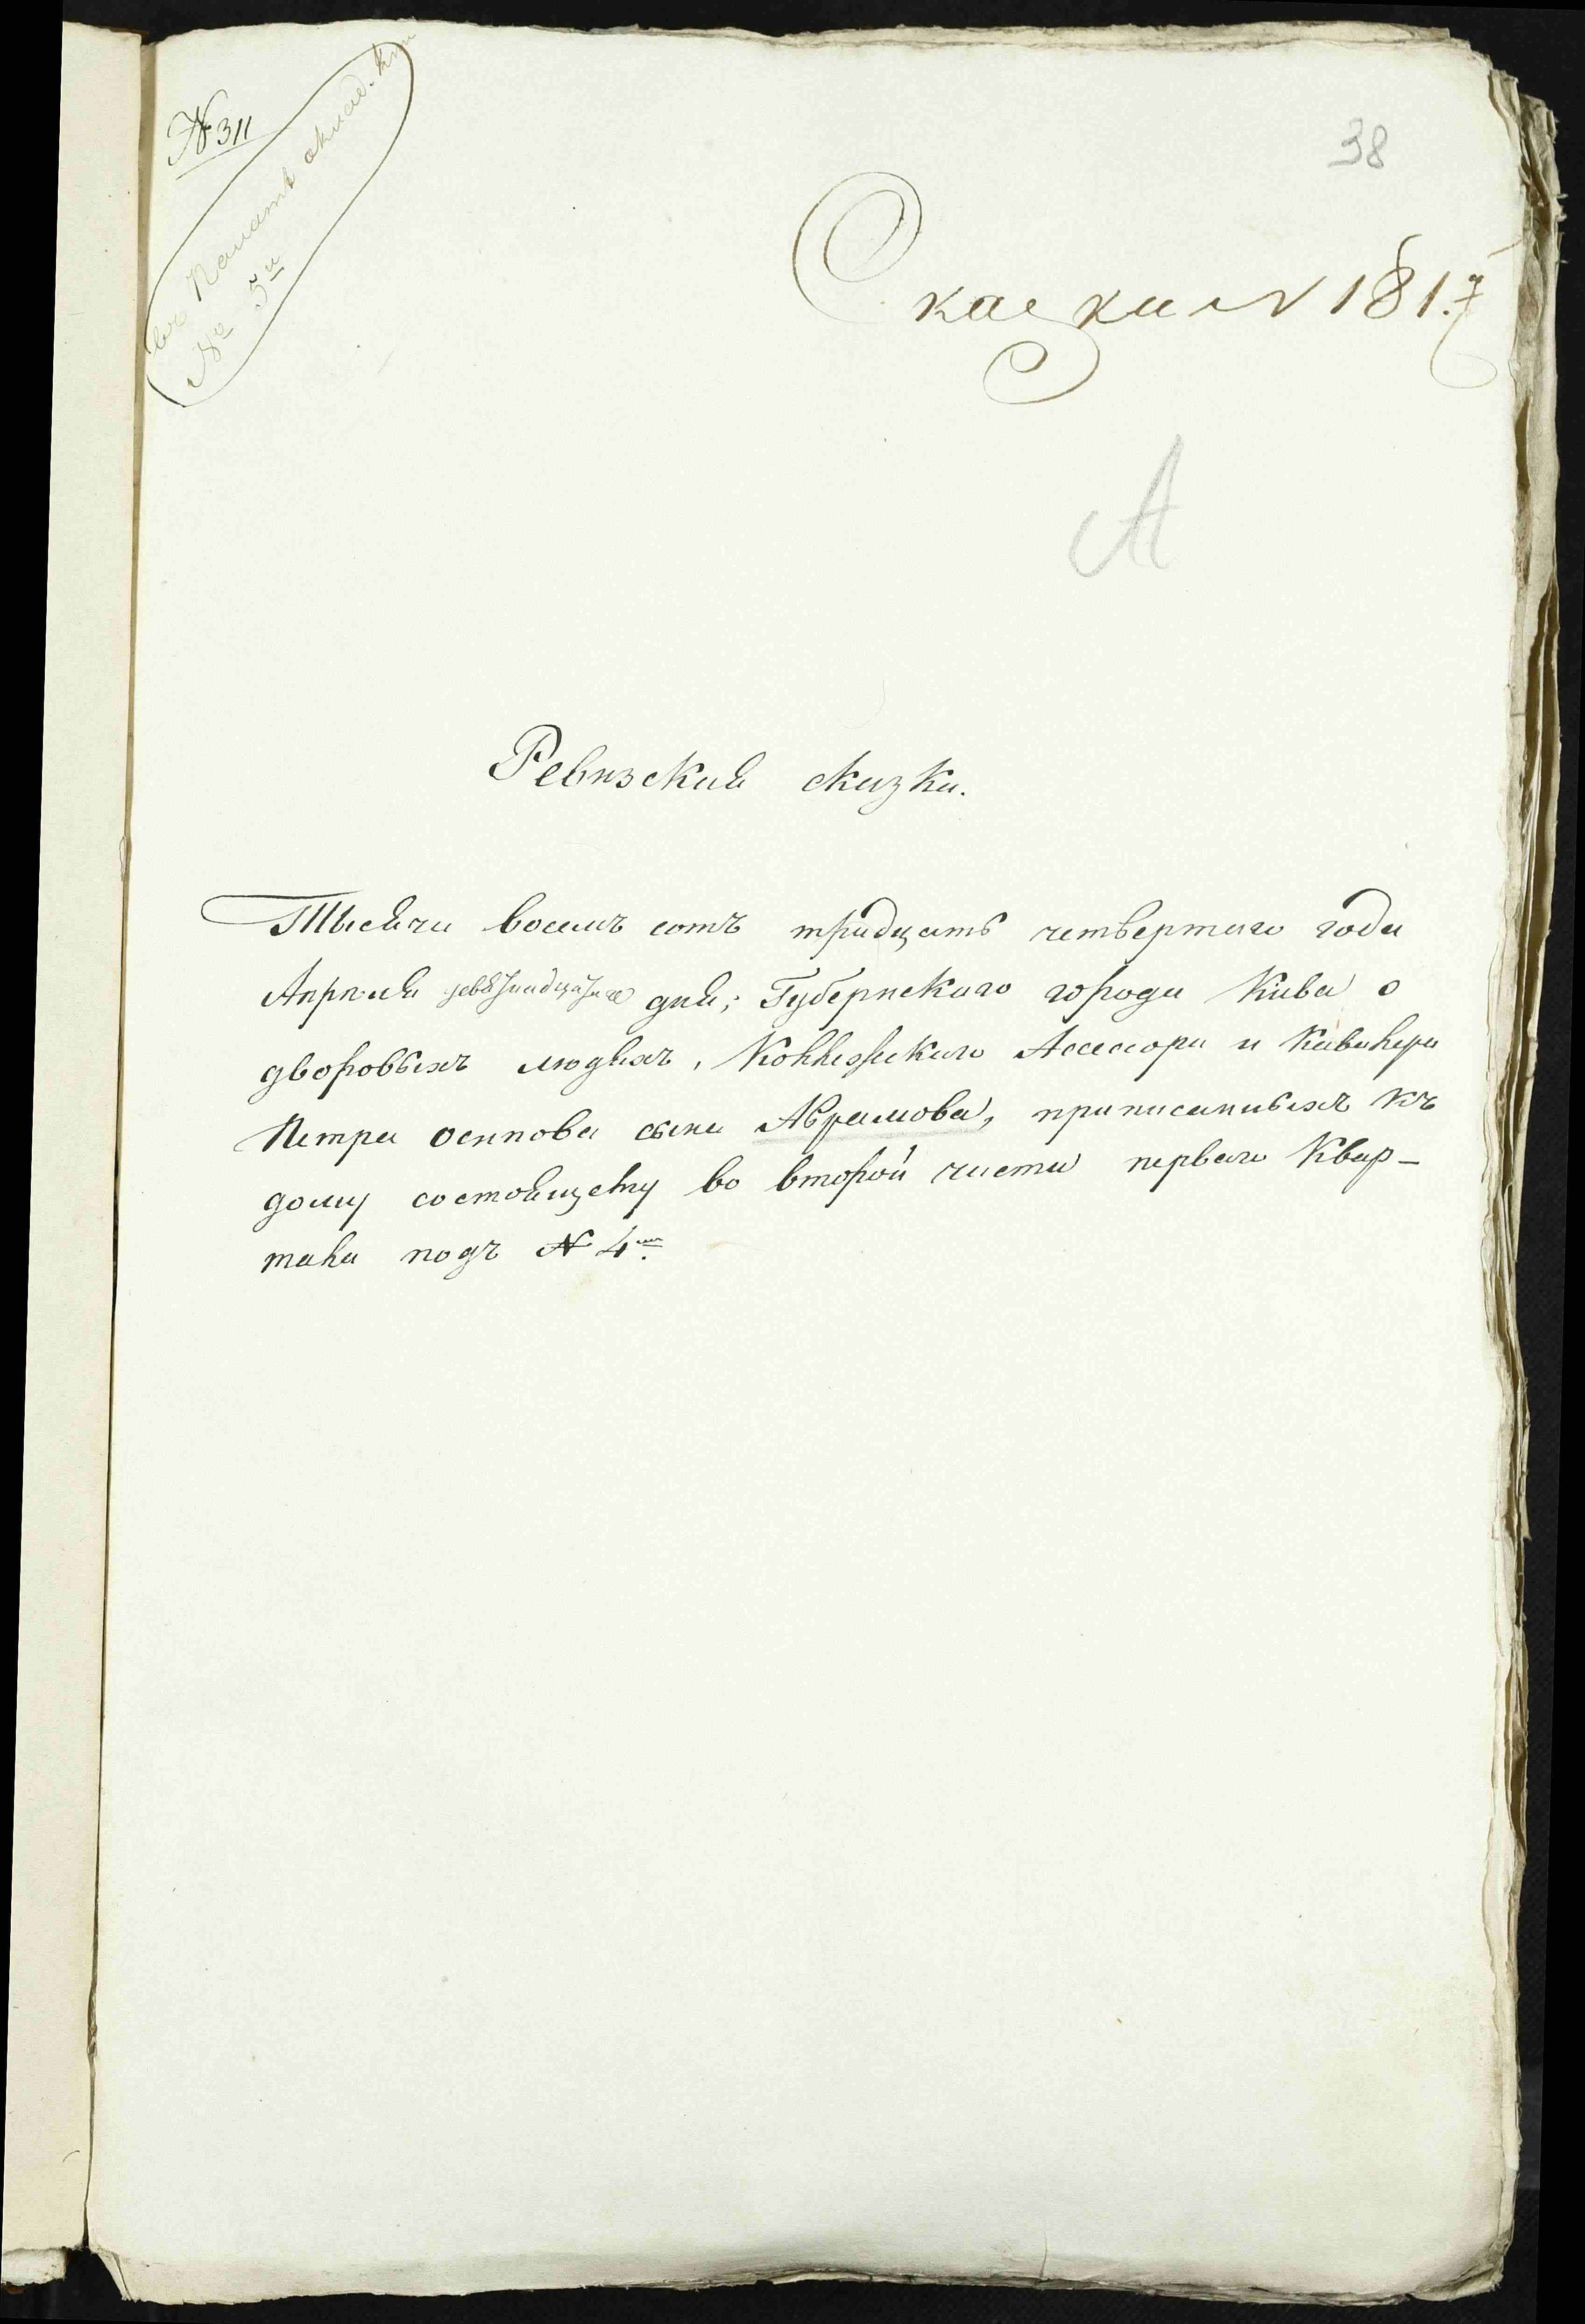 N 311
въ Палатѣ оклад. кни
№ 5й
38
Сказка N 181.
А
Ревизская сказка.
Тысяча восемъ сотъ тридцать четвертаго года
Апрѣля девятнадцатаго дня; Губернскаго города Киева о
дворовыхъ людяхъ, Коллежскаго Асессора и Кавалера
Петра Осипова сына Аврамова, приписанныхъ къ
дому состоящему во второй части перваго Квар-
тала подъ N 4м.